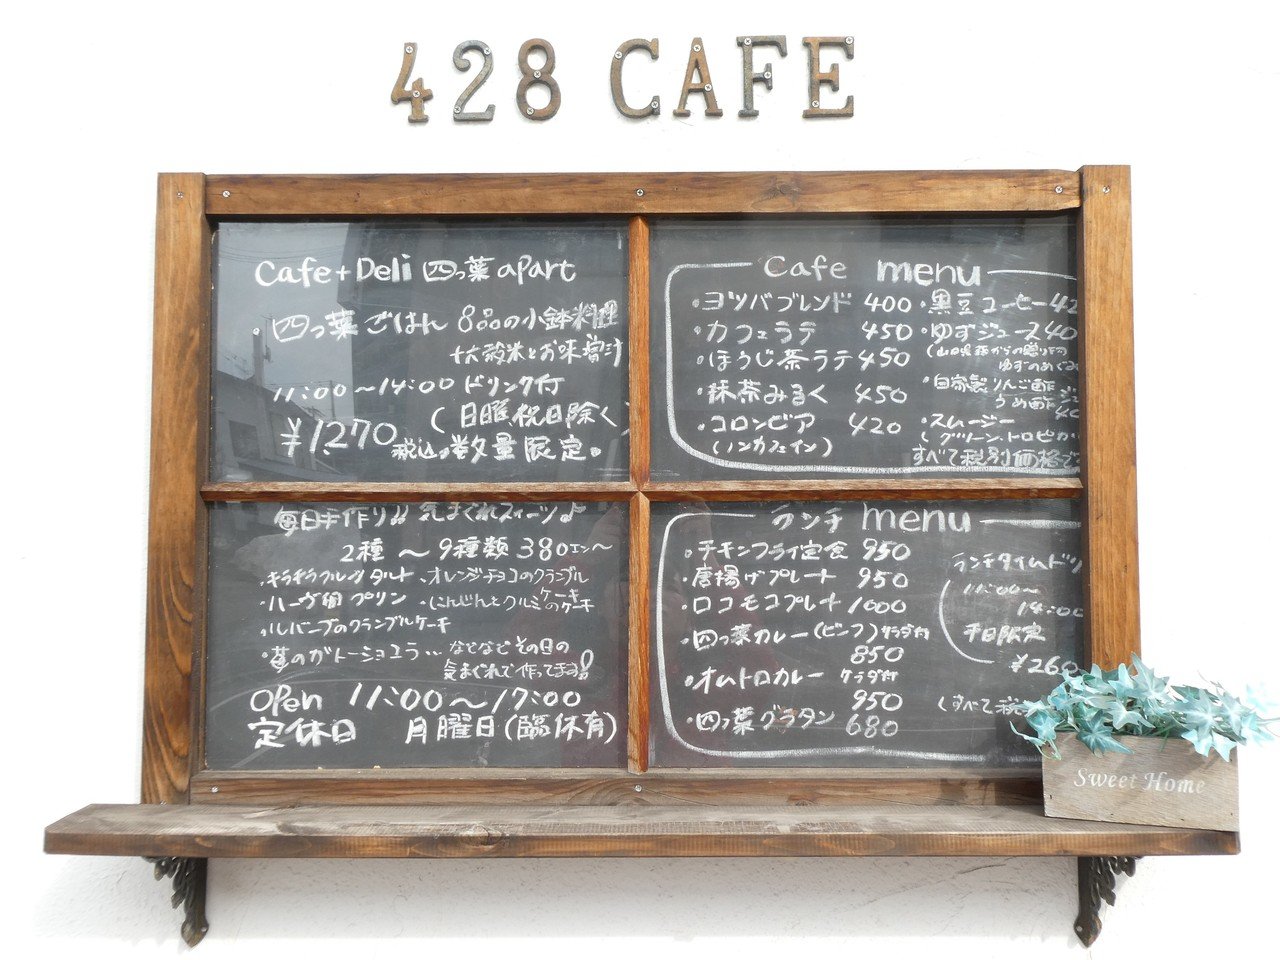 428 CAFE
Cafe+Deli 四つ葉 apart
・四つ葉ごはん 8品の小鉢料理
十六穀米とお味噌汁
11:00〜14:00 ドリンク付
(日曜、祝日除く)
¥1,270 税込 数量限定。
毎日手作り!! 気まぐれスイーツ♪
2種〜9種類 380エン〜
・キラキラフルーツタルト ・オレンジチョコのクランブル
・ハーヴ園プリン ・にんじんとクルミのケーキ
・ルバーブのクランブルケーキ
・苺のガトーショコラ… などなど その日の
気まぐれで作ってます!
Open 11:00〜17:00
定休日 月曜日(臨休有)
Cafe menu
・ヨツバブレンド 400
・カフェラテ 450
・ほうじ茶ラテ 450
・抹茶みるく 450
・コロンビア 420
(ノンカフェイン)
・黒豆コーヒー 42
・ゆずジュース 40
(山口県萩からの贈り物
ゆずのめぐみ
・自家製りんご酢
うめ酢
・スムージー
(グリーン、トロピカ
すべて税別価格で
ランチ menu
・チキンフライ定食 950
・唐揚げプレート 950
・ロコモコプレート 1000
・四つ葉カレー(ビーフ)サラダ付
850
・オムトロカレー サラダ付
950
・四つ葉グラタン 680
ランチタイムドリ
11:00〜
14:00
平日限定
¥260
(すべて税
Sweet Home